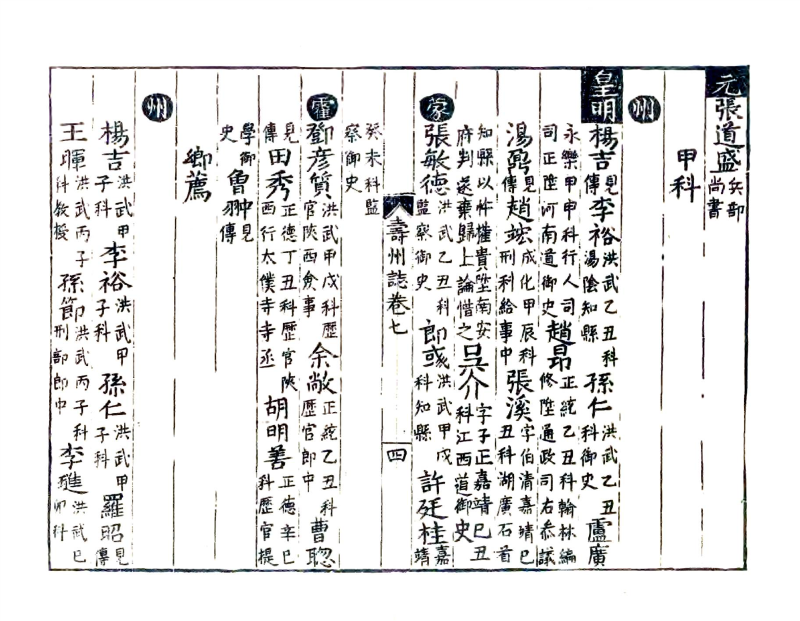 元張道盛兵部尚書
甲科
州
皇明楊吉見傳李裕洪武乙丑科湯陰知縣孫仁洪武乙丑科御史盧廣
永樂甲申科行人司司正陞河南道御史趙昂正統乙丑科翰林編修陞通政司右叅議
湯鼐見傳趙竑成化甲辰科刑科給事中張溪字伯清嘉靖己丑科湖廣石首
知縣以忤權貴陞南安府判遂棄歸士論惜之吳介字子正嘉靖己丑科江西道御史
蒙張敏德洪武乙丑科監察御史郎彧洪武甲戌科知縣許廷桂嘉靖
壽州誌卷七 四
癸未科監察御史
霍鄧彥質洪武甲戌科歷官陝西僉事余敞正統乙丑科歷官郎中曹聦
見傳田秀正德丁丑科歷官陝西行太僕寺寺丞胡明善正德辛巳科歷官提
學御史魯翀見傳
鄉薦
州
楊吉洪武甲子科李裕洪武甲子科孫仁洪武甲子科羅昭見傳
王暉洪武丙子科教授孫節洪武丙子科刑部郎中李璡洪武己卯科